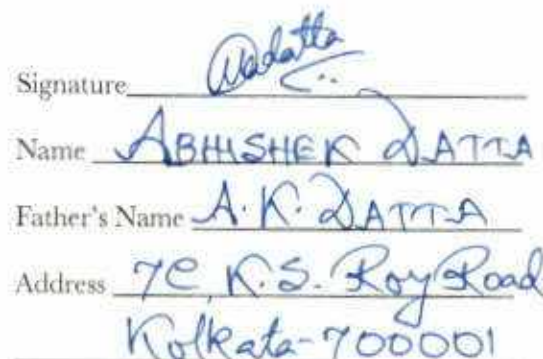 Signature
Name ABHISHEK DATTA
Father's Name A. K. DATTA
Address 7C, K.S. Roy Road
Kolkata-700001